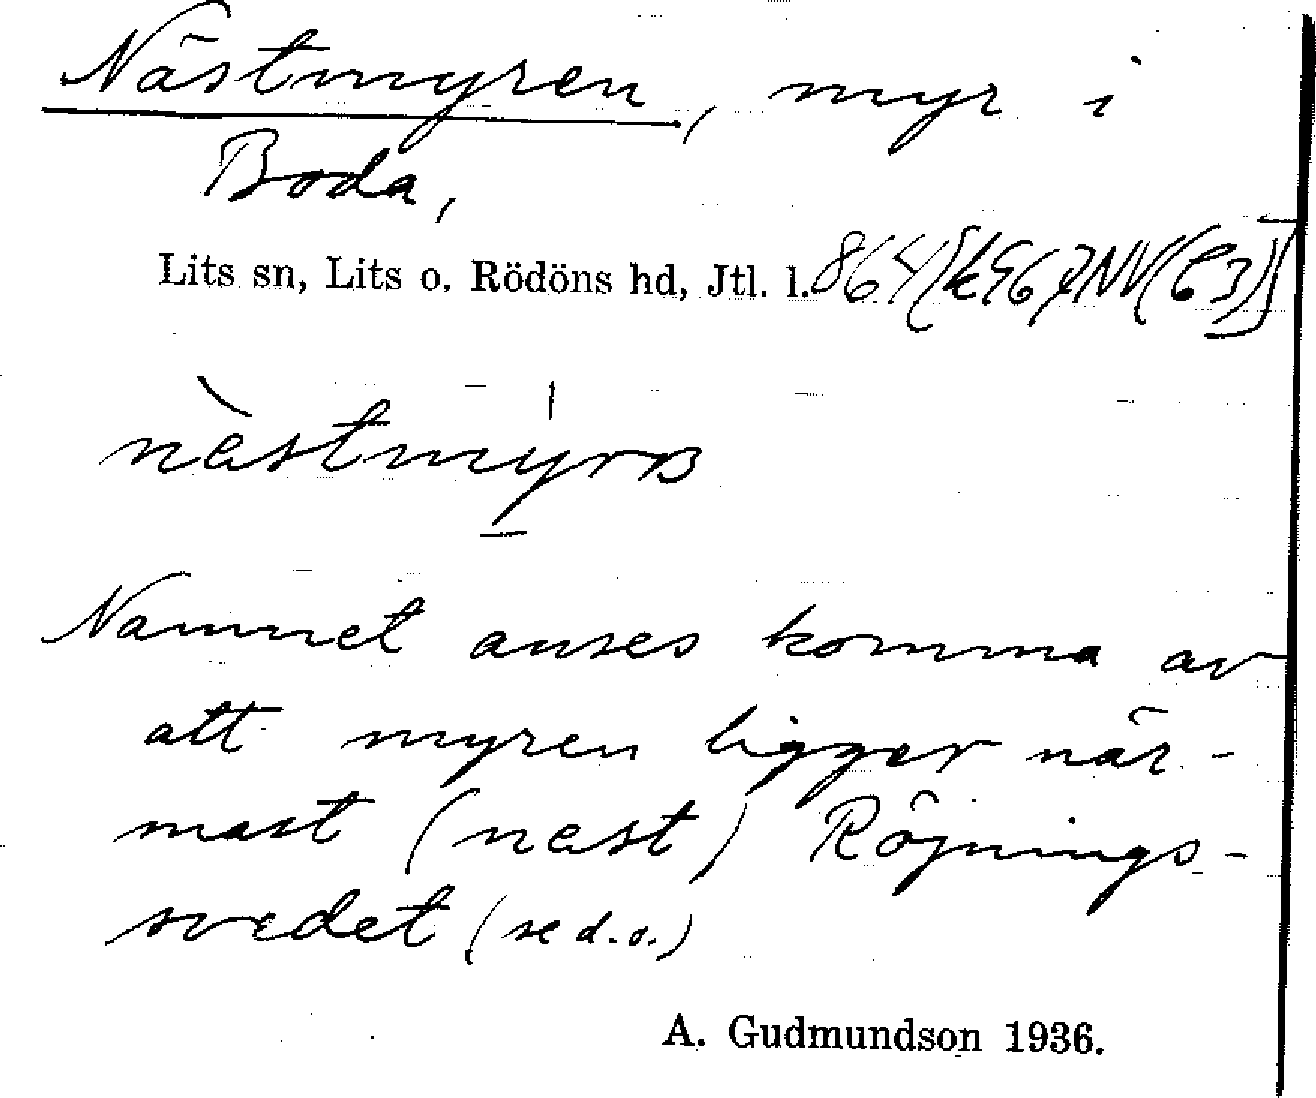 Nästmyren, myr i
Boda,
Lits sn, Lits o. Rödöns hd, Jtl. l. 864
nàstmyrɷ
Namnet anses komma av
att myren ligger när-
mast (nast) Röjnings-
svedet (se d.o.)
A. Gudmundson 1936.